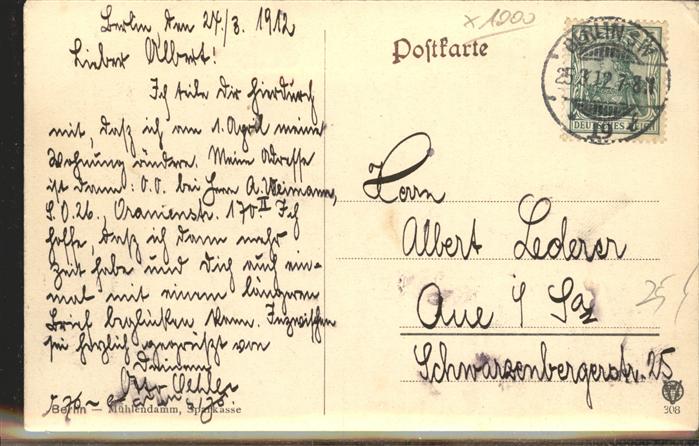 Berlin den 24./3. 1912
Lieber Albert!
Ich teile Dir hierdurch
mit, daß ich am 1. April meine
Wohnung ändere. Meine Adresse
ist dann: O.O. bei Herrn A. Weimann,
S.O. 26., Oranienstr. 170 II Ich
hoffe, daß ich dann mehr
Zeit habe und Dich auch ein-
mal mit einem längeren
Brief beglücken kann. Inzwischen
sei herzlich gegrüßt von
Deinem
Otto Oehler
Berlin — Mühlendamm, Sparkasse
x 1000
Postkarte
BERLIN S.W.
25.3.12.7-8N
19
DEUTSCHES REICH
Herrn
Albert Lederer
Aue i/Sa
Schwarzenbergerstr. 25
308